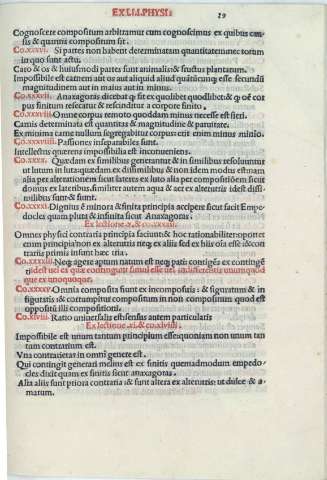 EX LI.I. PHYSI.
19
Cognoscere compositum arbitramur cum cognoscimus ex quibus cau
sis & quanmi compositum sit.
Co.xxxvi. Si partes non habent determinatam quantitatem: nec totum
in quo sunt actu.
Caro & os & huiusmodi partes sunt animaliũ & fructus plantarum.
Impossibile est carnem aut os aut aliquid aliud quãtũcunq; esse secundũ
magnitudinem aut in maius aut in minus.
Co.xxxvii. Anaxagoras dicebat ꝙ sit ex quolibet quodlibet: & ꝙ oẽ cor
pus finitum resecatur & rescinditur a corpore finito.
Co.xxxviii. Omne corpus remoto quoddam minus necesse est fieri.
Carnis determinata est quantitas & magnitudine & paruitate.
Ex minima carne nullum segregabitur corpus: erit enim minus minio.
Co.xxxviiii. Passiones inseparabiles sunt.
Intellectus quærens impossibilia est inconueniens.
Co.xxxx. Quædam ex similibus generantur & in similibus resoluuntur
ut lutum in luta: quædam ex dissimilibus & non idem modus est: nam
alia per alterationem sicut lateres ex luto alia per compositionẽ sicut
domus ex lateribus. similiter autem aqua & aer ex alterutris idest dissi
milibus sunt & fiunt.
Co.xxxxi. Dignius é minora & finita principia accipere sicut facit Empe
docles quam plura & infinita sicut Anaxagoras.
Ex lectione
Omnes physici contraria principia faciunt & hoc rationabiliter: oportet
enim principia non ex alterutris neq; ex aliis sed ex his oĩa esse: & con
trariis primis insunt hæc utraq;.
Co.xxxxiii. Neq; agere aptum natum est neq; pati contigẽs ex contingẽ
ti idest uel ex quo contingunt simul esse uel indifferentis unumquod
que ex unoquoque.
Co.xxxxv. Omnia composita fiunt ex incompositis: & figuratum & in
figuratis & corrumpitur compositum in non compositum quod est
oppositũ illi compositioni.
Co.xlviii. Ratio uniuersalis est sensus autem particularis
Ex lectione xi. & co.xlviiii.
Impossibile est unum tantum principium esse: quoniam non unum tan
tum contrarium est.
Vna contrarietas in omni genere est.
Qui contingit generari melius est ex finitis quemadmodum empedo
cles dixit quam ex finitis sicut anaxagoras.
Alia aliis sunt priora contraria & sunt altera ex alterutris: ut dulce & a-
marum.